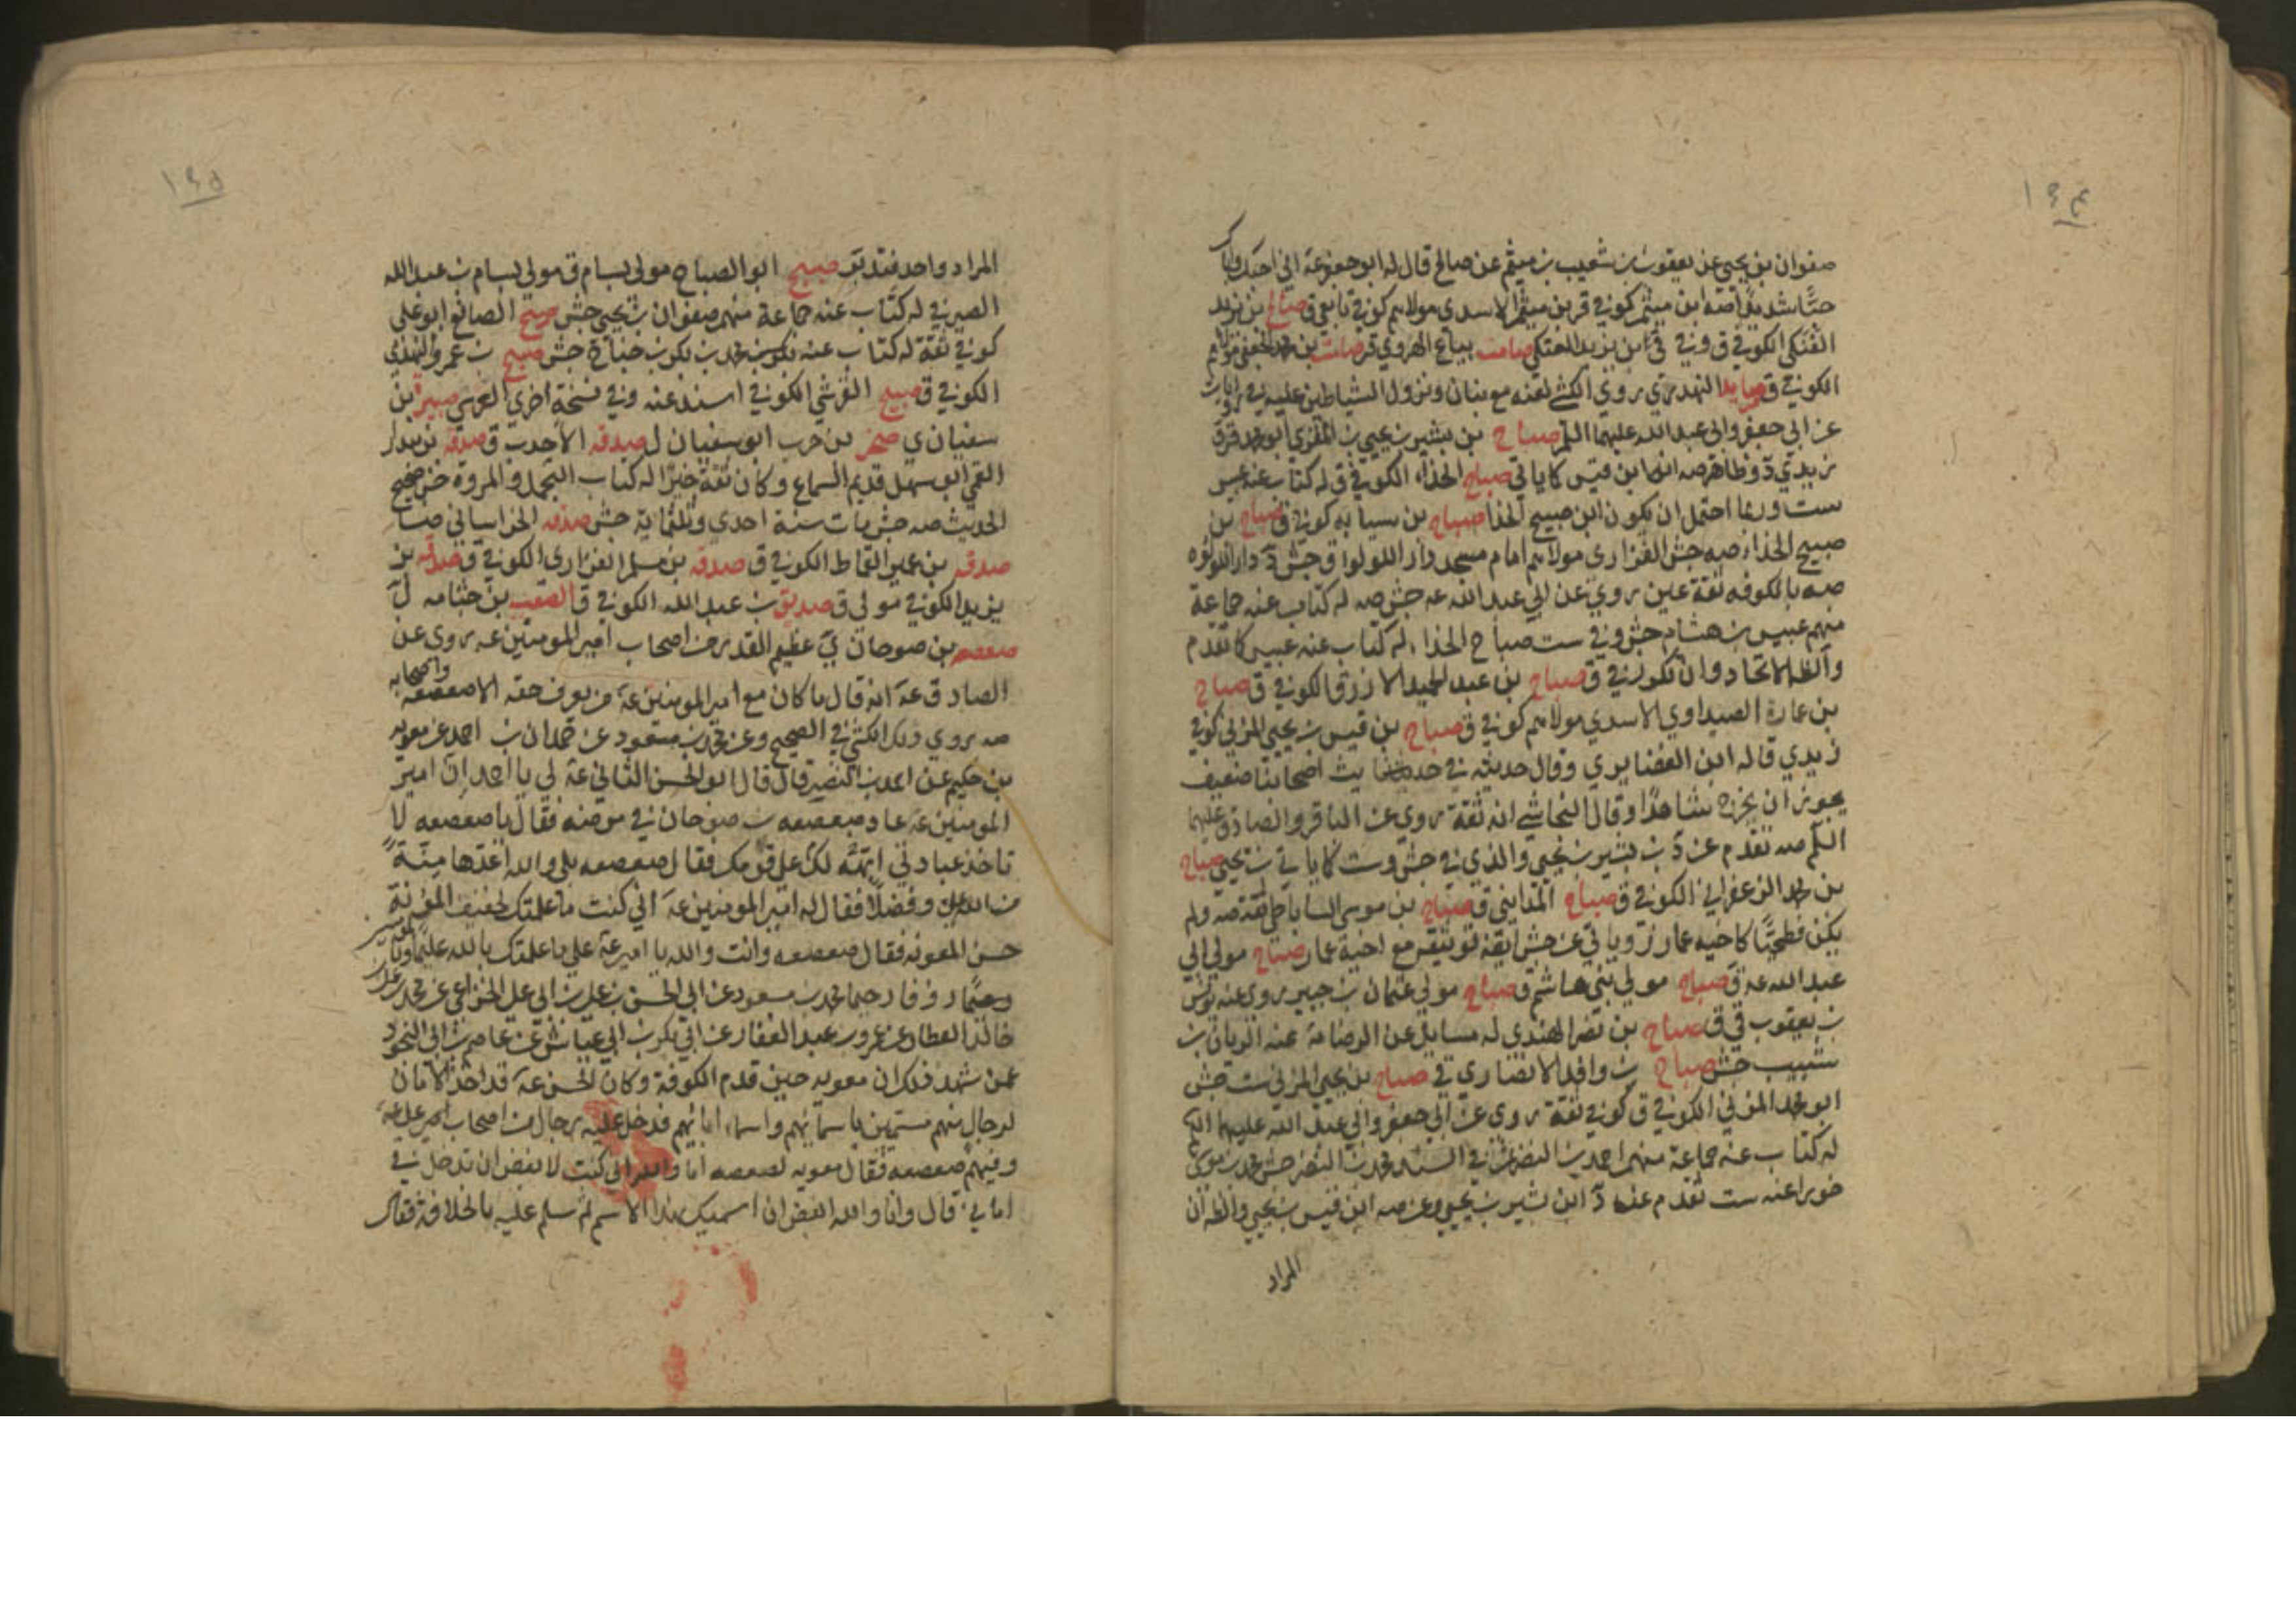 ١٩٤
صفوان بن يحيى عن يعقوب بن شعيب بن ميثم عن صالح قال له ابو جعفر عه اني احبك واباك
حبًّا شديدًا صه ابن ميثم كوفي قر بن ميثم الاسدي مولاهم كوفي تابعي ق صالح بن يزيد
العتكي الكوفي ق وفي ابن يزيد العتكي صامت بياع الهروي قر
الكوفي ق صايد النهدي روي الكشي لعنه مع بنان ونزول الشياطين عليه في روايات
عن ابي جعفر وابي عبد الله عليهما السلم صباح بن بشير بن يحيى المقري ابو محمد قر ق
زيدي د وظاهر صه انه ابن قيس كما ياتي صباح الحذاء الكوفي ق له كتاب عنه عبيس
ست وربما احتمل ان يكون ابن صبيح الحذا صباح بن سيابه كوفي ق صباح بن
صبيح الحذاء صه جش الفزاري مولاهم امام مسجد دار اللولوا ق جش د دار اللولوه
صه بالكوفه ثقة عين روي عن ابي عبد الله عه جش صه له كتاب عنه جماعة
منهم عبيس بن هشام جش وفي ست صباح الحذا له كتاب عنه عبيس كما تقدم
والظ الاتحاد وان تكرر في ق صباح بن عبد الحميد الازرق الكوفي ق صباح
بن عمارة الصيداوي الاسدي مولاهم كوفي ق صباح بن قيس بن يحيى المزني كوفي
زيدي قاله ابن الغضايري وقال حديثه في حديث اصحابنا ضعيف
يجوز ان يخرج شاهدًا وقال النجاشي انه ثقة روي عن الباقر والصادق عليهما
السلم صه تقدم عن د بن بشير بن يحيى والذي في جش وست كما ياتي بن يحيى صباح
بن محمد الزعفراني الكوفي ق صباح المدايني ق صباح بن موسى الساباطي ثقة صه ولم
يكن فطحيًّا كاخيه عمار د وياتي عن جش ايضا توثيقه مع اخيه عمار صباح مولي ابي
عبد الله عه ق صباح مولي بني هاشم ق صباح مولي عثمان بن جبير روي عنه يونس
بن يعقوب في ق صباح بن نصر الهندي له مسايل عن الرضا عه عنه الريان بن
شبيب جش صباح بن واقد الانصاري ق صباح بن يحيى المزني ست جش
ابو محمد المزني الكوفي ق كوفي ثقة روي عن ابي جعفر وابي عبد الله عليهما السلم
له كتاب عنه جماعة منهم احمد بن النضر جش في السند محمد بن النضر جش محمد بن موسي
خوراء عنه ست تقدم عن د ابن بشير بن يحيى وعن صه ابن قيس بن يحيى والظ ان
المراد
١٩٥
المراد واحد فتدبر صبيح ابو الصباح مولي بسام ق مولي بسام بن عبد الله
الصيرفي له كتاب عنه جماعة منهم صفوان بن يحيى جش صبيح الصائغ ابو علي
كوفي ثقة له كتاب عنه بكر بن محمد بن بكر بن جناح جش صبيح بن عمرو النهدي
الكوفي ق صبيح القرشي الكوفي اسند عنه وفي نسخة اخري العرسي
سفيان ي صخر بن حرب ابو سفيان ل صدقه الاحدب ق صدقه بن بندار
القمي ابو سهل قديم السماع وكان ثقة خيرًا له كتاب التجمل والمروة حسن صحيح
الحديث صه جش مات سنة احدي وثلثمايه جش صدقه الخراساني ضا
صدقه بن عمير القماط الكوفي ق صدقه بن مسلم الفزاري الكوفي ق صدقه بن
يزيد الكوفي مولي ق صديق بن عبد الله الكوفي ق الصعب بن جثامه ل
صعصعه بن صوحان ي عظيم القدر من اصحاب امير المومنين عه روي عن
الصادق عه انه قال ما كان مع امير المومنين عه من يعرف حقه الا صعصعه واصحابه
صه روي ذلك الكشي في الصحيح وعن محمد بن مسعود عن حمدان بن احمد عن معويه
بن حكيم عن احمد بن النصر قال قال ابو الحسن الثاني عه لي يا احمد ان امير
المومنين عه عاد صعصعه بن صوحان في مرضه فقال يا صعصعه لا
تاخذ عيادتي ابهة لك على قومك فقال صعصعه بلى والله اعدها منة
من الله علي وفضلاً فقال له امير المومنين عه اني كنت ما علمتك لخفيف المؤنة
حسن المعونه فقال صعصعه وانت والله يا امير عه علي ما علمتك بالله عليما وبالمؤمنين
رؤفا رحيما محمد بن مسعود عن ابي الحسن بن علي بن ابي علي الخزاعي عن محمد بن علي بن
خالد العطار عن عمرو بن عبد الغفار عن ابي بكر بن ابي عياش عن عاصم بن ابي النجود
عمن شهد ذلك ان معويه حين قدم الكوفة وكان الحسن عه قد اخذ الامان
لرجال منهم مسمين باسمائهم واسماء ابائهم فدخل عليه رجال من اصحاب امير عه
وفيهم صعصعه فقال معويه لصعصعه اما والله اني كنت لابغض ان تدخل في
اماني قال وانا والله ابغض ان اسميك بهذا الاسم ثم سلم عليه بالخلافة فقال